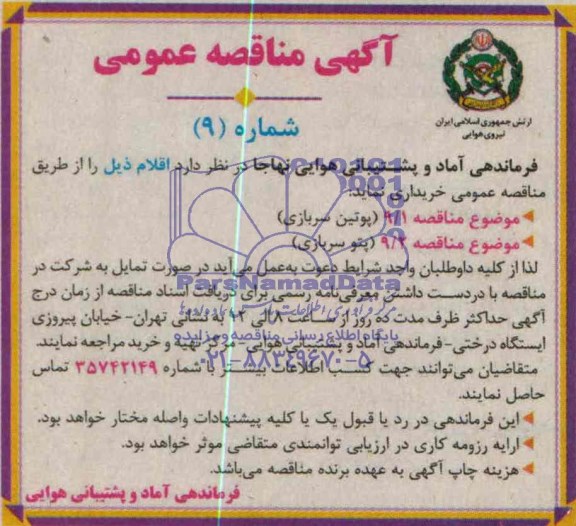 آگهی مناقصه عمومی
ارتش جمهوری اسلامی ایران
نیروی هوایی
شماره (۹)
فرماندهی آماد و پشتیبانی هوایی نهاجا در نظر دارد اقلام ذیل را از طریق
مناقصه عمومی خریداری نماید:
موضوع مناقصه ۹/۱ (پوتین سربازی)
موضوع مناقصه ۹/۲ (پتو سربازی)
لذا از کلیه داوطلبان واجد شرایط دعوت به‌عمل می‌آید در صورت تمایل به شرکت در
مناقصه با دردست داشتن معرفی‌نامه رسمی برای دریافت اسناد مناقصه از زمان درج
آگهی حداکثر ظرف مدت ده روز از ساعت ۸ الی ۱۴ به نشانی تهران- خیابان پیروزی
ایستگاه درختی- فرماندهی آماد و پشتیبانی هوایی- مرکز تهیه و خرید مراجعه نمایند.
متقاضیان می‌توانند جهت کسب اطلاعات بیشتر با شماره ۳۵۷۴۲۱۴۹ تماس
حاصل نمایند.
این فرماندهی در رد یا قبول یک یا کلیه پیشنهادات واصله مختار خواهد بود.
ارایه رزومه کاری در ارزیابی توانمندی متقاضی موثر خواهد بود.
هزینه چاپ آگهی به عهده برنده مناقصه می‌باشد.
فرماندهی آماد و پشتیبانی هوایی
ParsNamadData
پایگاه اطلاع رسانی مناقصه و مزایده
۰۲۱-۸۸۳۴۹۶۷۰-۵